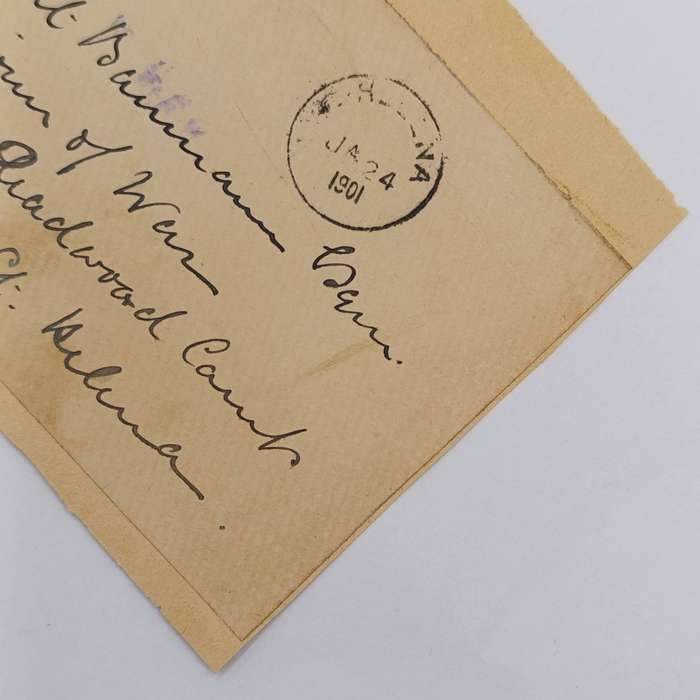 Baumann Senr.
of War
Deadwood Camp
St. Helena.
HELENA
JA 24
1901